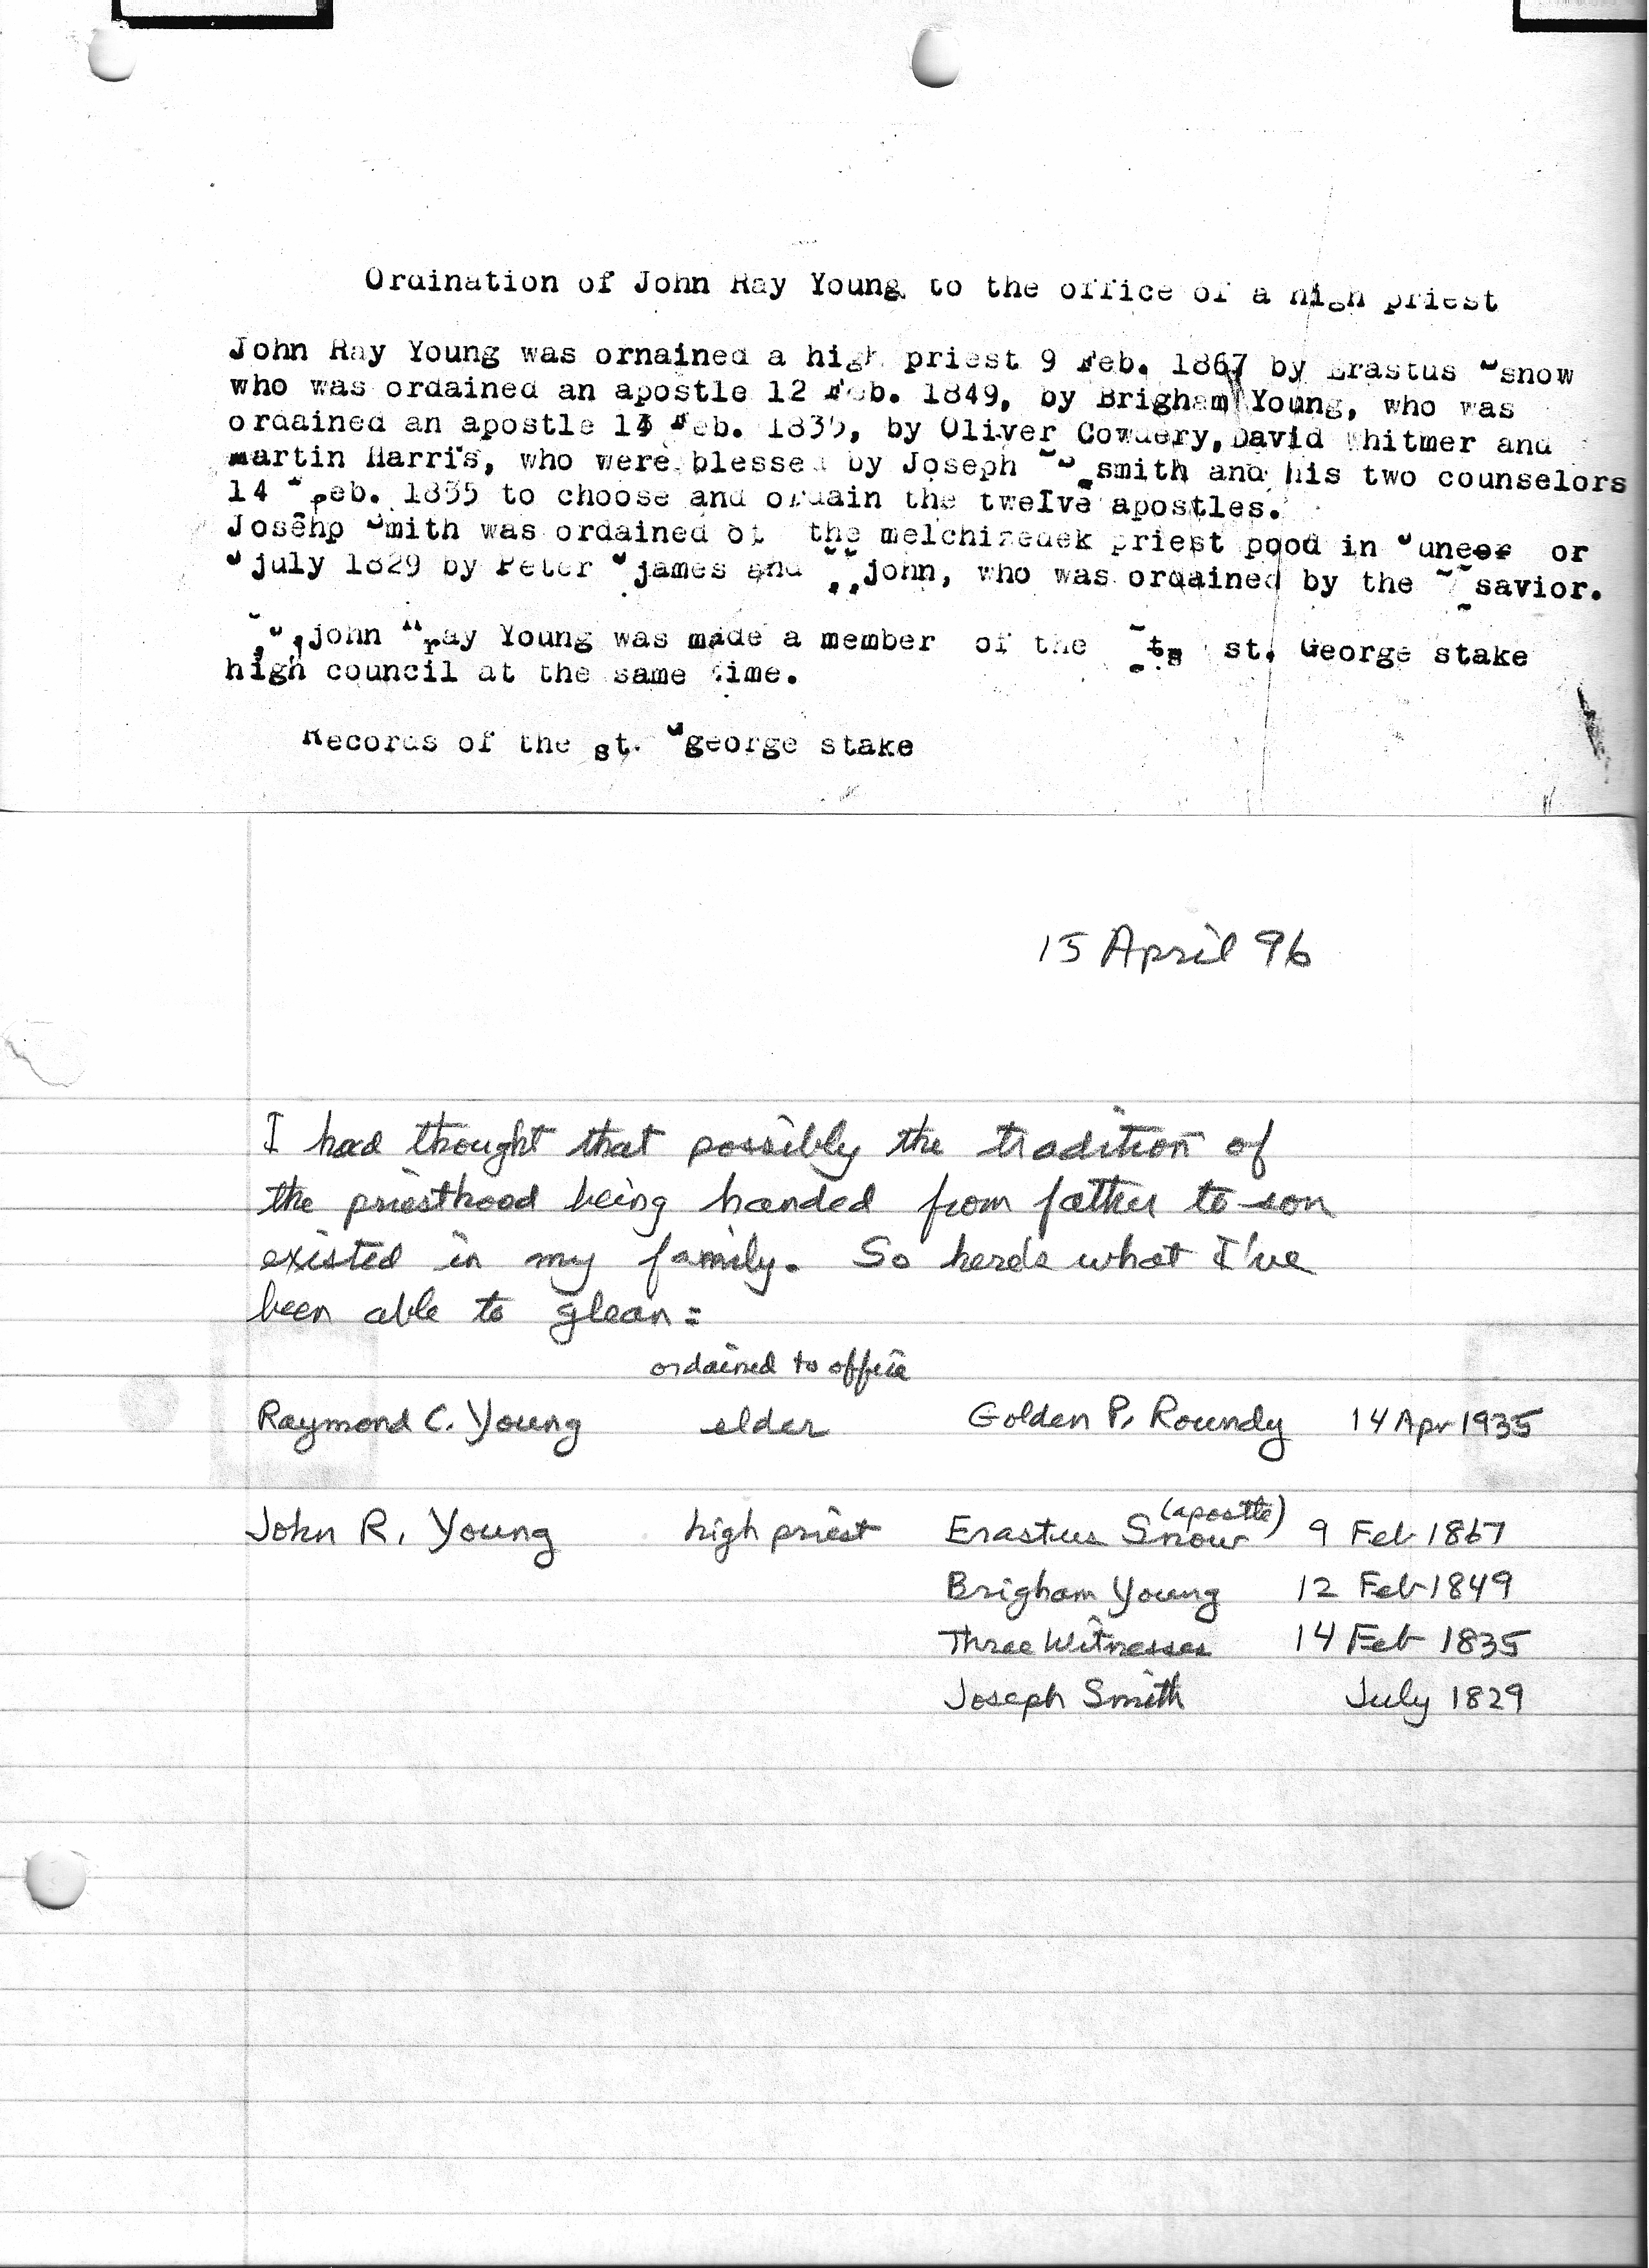 Ordination of John Ray Young to the office of a high priest
John Ray Young was ornained a high priest 9 Feb. 1867 by Erastus snow
who was ordained an apostle 12 Feb. 1849, by Brigham Young, who was
ordained an apostle 14 Feb. 1835, by Oliver Cowdery, David Whitmer and
martin Harris, who were blessed by Joseph smith and his two counselors
14 Feb. 1835 to choose and ordain the twelve apostles.
Josehp Smith was ordained ot the melchizedek priest pood in June or
july 1829 by Peter james and john, who was ordained by the savior.
john ray Young was made a member of the st. George stake
high council at the same time.
Records of the st. george stake
15 April 96
I had thought that possibly the tradition of
the priesthood being handed from father to son
existed in my family. So here's what I've
been able to glean:
ordained to office
Raymond C. Young elder Golden P. Roundy 14 Apr 1935
John R. Young high priest Erastus Snow (apostle) 9 Feb 1867
Brigham Young 12 Feb 1849
Three Witnesses 14 Feb 1835
Joseph Smith July 1829